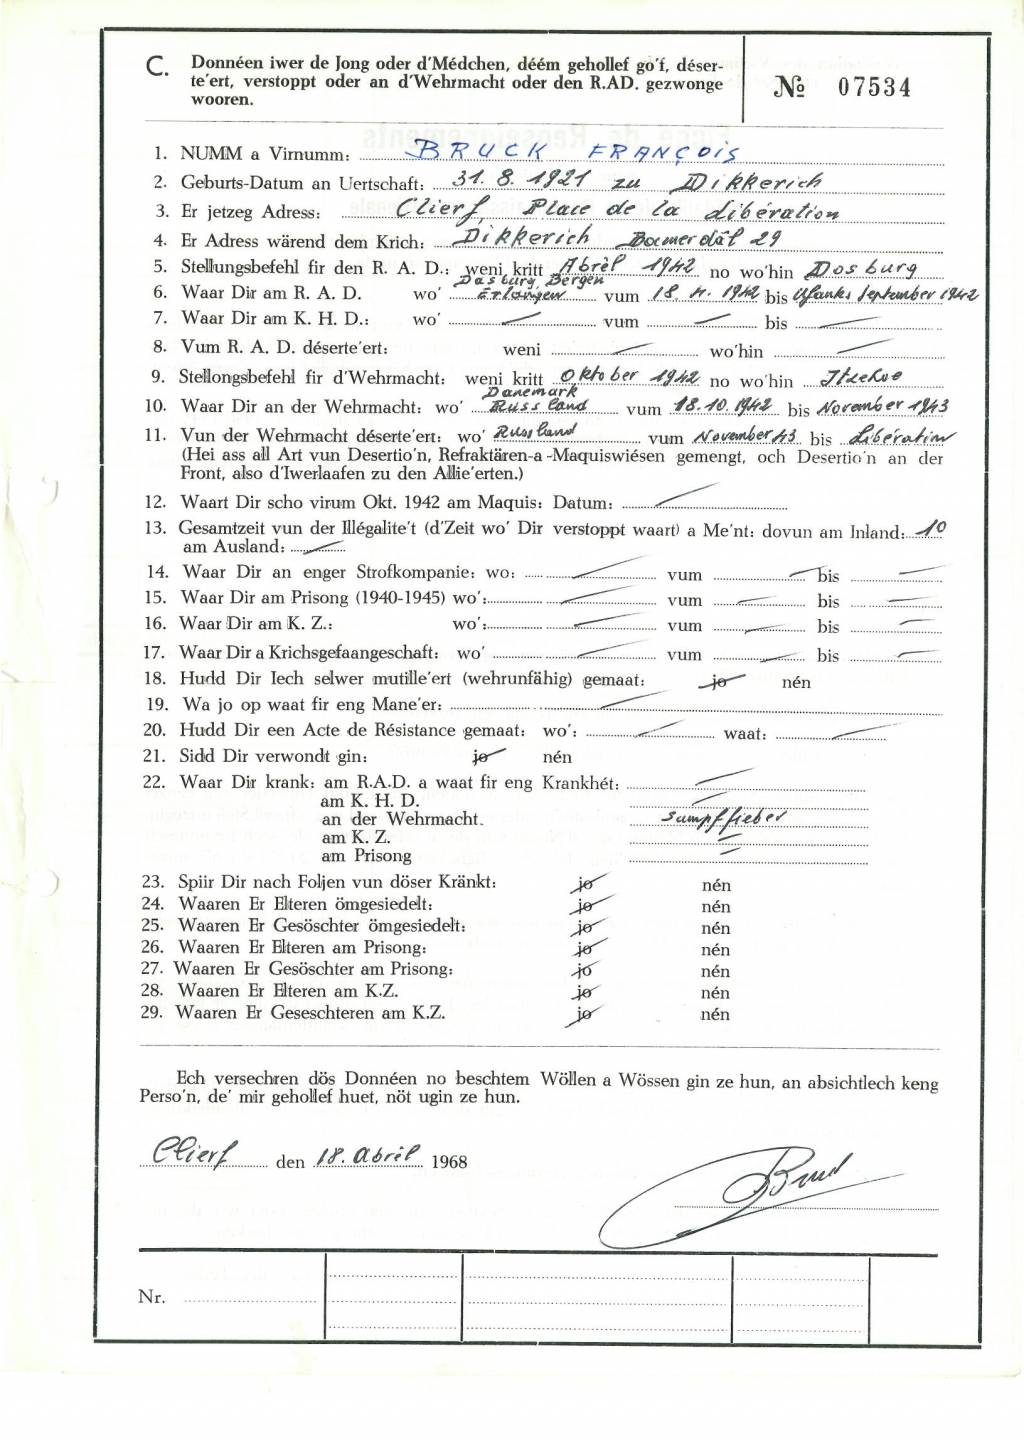 C. Donnéen iwer de Jong oder d'Médchen, déém gehollef go'f, déser-
te'ert, verstoppt oder an d'Wehrmacht oder den R.AD. gezwonge
wooren.
№ 07534
1. NUMM a Virnumm: BRUCK FRANÇOIS
2. Geburts-Datum an Uertschaft: 31.8.1921 zu Dikkerich
3. Er jetzeg Adress: Clierf, Place de la Libération
4. Er Adress wärend dem Krich: Dikkerich Bamerdâl 29
5. Stellungsbefehl fir den R. A. D.: weni kritt Abrël 1942 no wo'hin Dosburg
Dasburg, Bergen
6. Waar Dir am R. A. D. wo' Erlangen vum 18. 4. 1942 bis Ufanks September 1942
7. Waar Dir am K. H. D.: wo' vum bis
8. Vum R. A. D. déserte'ert: weni wo'hin
9. Stellongsbefehl fir d'Wehrmacht: weni kritt Oktober 1942 no wo'hin Itzehoe
Danemark
10. Waar Dir an der Wehrmacht: wo' Russland vum 18.10.1942 bis November 1943
11. Vun der Wehrmacht déserte'ert: wo' Russland vum November 43 bis Libération
(Hei ass all Art vun Desertio'n, Refraktären-a -Maquiswiésen gemengt, och Desertio'n an der
Front, also d'Iwerlaafen zu den Allie'erten.)
12. Waart Dir scho virum Okt. 1942 am Maquis: Datum:
13. Gesamtzeit vun der Illégalite't (d'Zeit wo' Dir verstoppt waart) a Me'nt: dovun am Inland: 10
am Ausland:
14. Waar Dir an enger Strofkompanie: wo: vum bis
15. Waar Dir am Prisong (1940-1945) wo': vum bis
16. Waar Dir am K. Z.: wo': vum bis
17. Waar Dir a Krichsgefaangeschaft: wo' vum bis
18. Hudd Dir Iech selwer mutille'ert (wehrunfähig) gemaat: jo nén
19. Wa jo op waat fir eng Mane'er:
20. Hudd Dir een Acte de Résistance gemaat: wo': waat:
21. Sidd Dir verwondt gin: jo nén
22. Waar Dir krank: am R.A.D. a waat fir eng Krankhét:
am K. H. D.
an der Wehrmacht. Sumpffieber
am K. Z.
am Prisong
23. Spiir Dir nach Foljen vun döser Kränkt: jo nén
24. Waaren Er Elteren ömgesiedelt: jo nén
25. Waaren Er Gesöschter ömgesiedelt: jo nén
26. Waaren Er Elteren am Prisong: jo nén
27. Waaren Er Gesöschter am Prisong: jo nén
28. Waaren Er Elteren am K.Z. jo nén
29. Waaren Er Geseschteren am K.Z. jo nén
Ech versechren dös Donnéen no beschtem Wöllen a Wössen gin ze hun, an absichtlech keng
Perso'n, de' mir gehollef huet, nöt ugin ze hun.
Clierf den 18. Abrël 1968
Bruck
Nr.